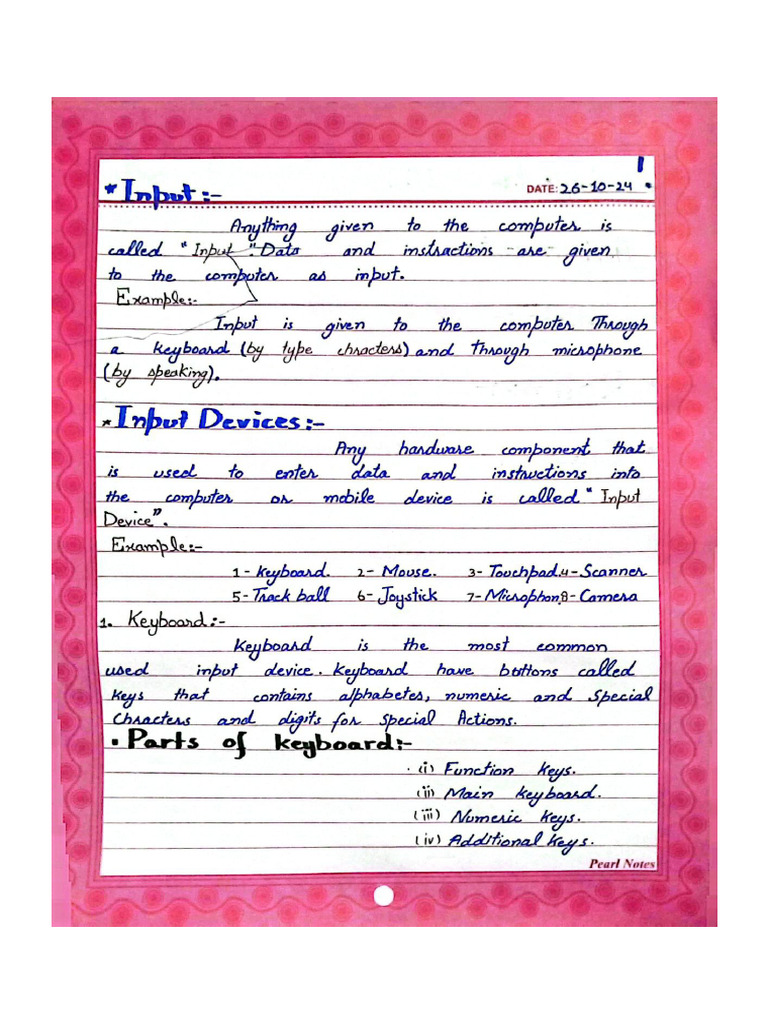 1
* Input:- DATE: 26-10-24
Anything given to the computer is
called "Input". Data and instractions are given
to the computer as input.
Example:-
Input is given to the computer Through
a keyboard (by type chracters) and Through microphone
(by speaking).
* Input Devices:-
Any hardware component that
is used to enter data and instructions into
the computer or mobile device is called "Input
Device".
Example:-
1- Keyboard. 2- Mouse. 3- Touchpad. 4- Scanner
5- Track ball 6- Joystick 7- Microphon. 8- Camera
1. Keyboard:-
Keyboard is the most common
used input device. Keyboard have buttons called
Keys that contains alphabetes, numeric and Special
Chracters and digits for Special Actions.
• Parts of keyboard:-
(i) Function Keys.
(ii) Main Keyboard.
(iii) Numeric Keys.
(iv) Additional Keys.
Pearl Notes